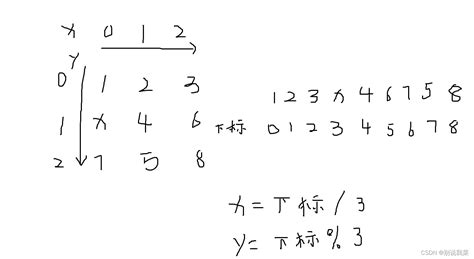 x 0 1 2
y
0 1 2 3
1 x 4 6
2 7 5 8
1 2 3 x 4 6 7 5 8
下标 0 1 2 3 4 5 6 7 8
x = 下标 / 3
y = 下标 % 3
CSDN @别说飘飘